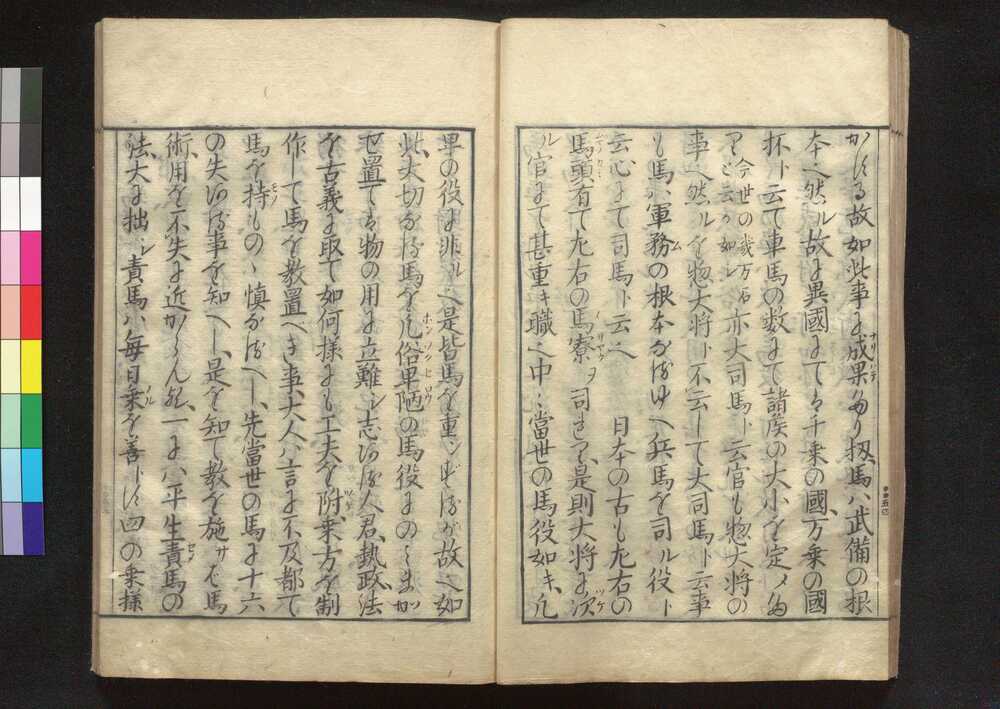 かゝる故如此事に成果たり扨馬ハ武備の根
本へ然ル故に異國にてハ千乗の國万乗の國
抔ト云て車馬の数にて諸侯の大小を定メ
今世の幾万石
と云が如し
亦大司馬ト云官も惣大将の
事へ然ルを惣大将ト不云して大司馬ト云事
も馬ハ軍務の根本なるゆへ兵馬を司ル役ト
云心にて司馬ト云へ 日本の古も左右の
馬頭有て左右の馬寮ヲ司れり是則大将に次
ル官にて甚重キ職へ中々當世の馬役如キ凡
卑の役に非ルへ是皆馬を重ンずるが故へ如
此大切なる馬を凡俗卑陋の馬役にのミまか
せ置てハ物の用に立難シ志ある人君執政法
を古義に取て如何様にも工夫を附乗方を制
作して馬を教置べき事大人ハ言に不及都て
馬を持もの、慎なるべし先當世の馬に十六
の失ある事を知べし是を知て教を施サば馬
術用を不失に近からん歟一にハ平生責馬の
法大に拙シ責馬ハ毎日乗を善トす四の乗様